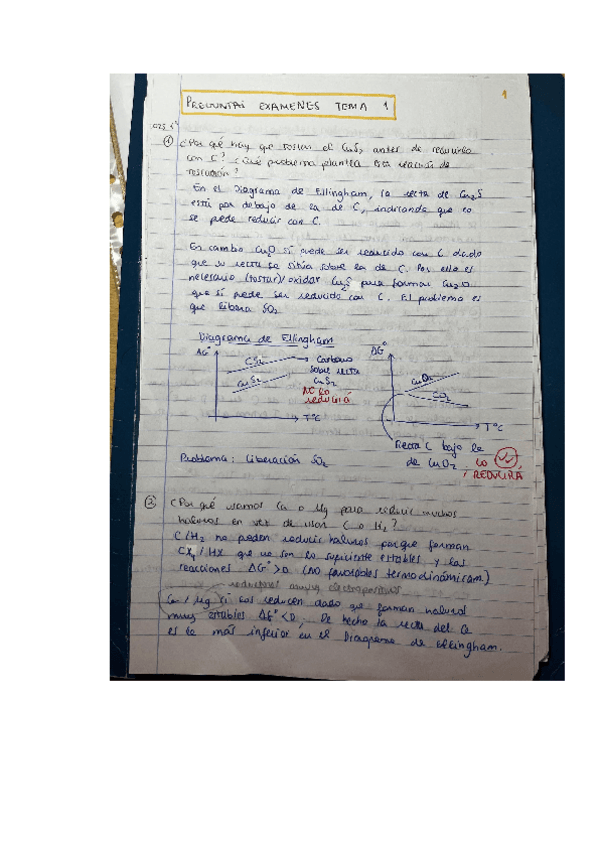 PREGUNTAS EXAMENES TEMA 1
1
① ¿Por qué hay que tostar el CuS₂ antes de reducirlo
con C? ¿Qué problema plantea esta reacción de
tostación?
En el Diagrama de Ellingham, la recta de Cu₂S
está por debajo de la de C, indicando que no
se puede reducir con C.
En cambio Cu₂O sí puede ser reducido con C dado
que su recta se sitúa sobre la de C. Por ello es
necesario (tostar)/oxidar Cu₂S para formar Cu₂O
que sí puede ser reducido con C. El problema es
que libera SO₂
Diagrama de Ellingham
ΔG°
CS₂
CuS₂
→ Carbono
sobre recta
CuS₂
NO LO
REDUCIRÁ
T°C
ΔG°
CuO₂
CO₂
T°C
Recta C bajo la
de CuO₂, LO
¡REDUCIRÁ
Problema: Liberación SO₂
② ¿Por qué usamos Ca o Mg para reducir muchos
haluros en vez de usar C o H₂?
C/H₂ no pueden reducir haluros porque forman
CX₄/HX que no son lo suficiente estables y las
reacciones ΔG°>0 (no favorables termodinámicam)
reductores muy electropositivos
Ca/Mg sí los reducen dado que forman haluros
muy estables ΔG°<0, De hecho la recta del Ca
es la más inferior en el Diagrama de Ellingham.